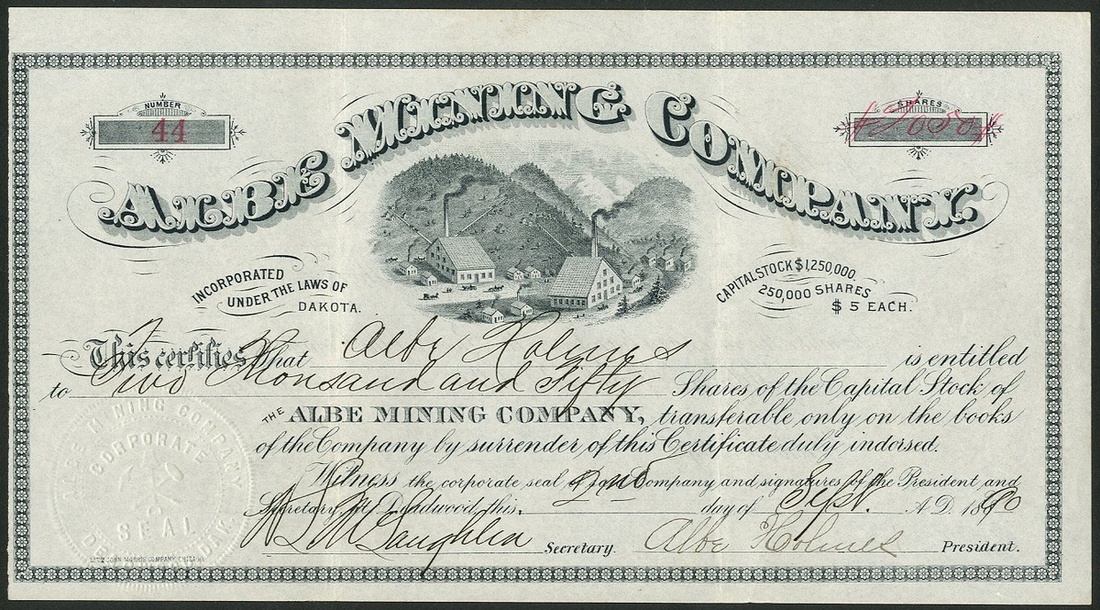 NUMBER
44
SHARES
2050
ALBE MINING COMPANY.
INCORPORATED
UNDER THE LAWS OF
DAKOTA.
CAPITAL STOCK $1,250,000.
250,000 SHARES
$5 EACH.
This certifies that Albe Holmes is entitled
to Two Thousand and Fifty Shares of the Capital Stock of
THE ALBE MINING COMPANY, transferable only on the books
of the Company by surrender of this Certificate duly indorsed.
Witness the corporate seal of said Company and signatures of the President and
Secretary, at Deadwood this 2nd day of Sept. A.D. 1890
McLaughlin Secretary. Albe Holmes President.
ALBE MINING COMPANY
CORPORATE
SEAL
DAK.